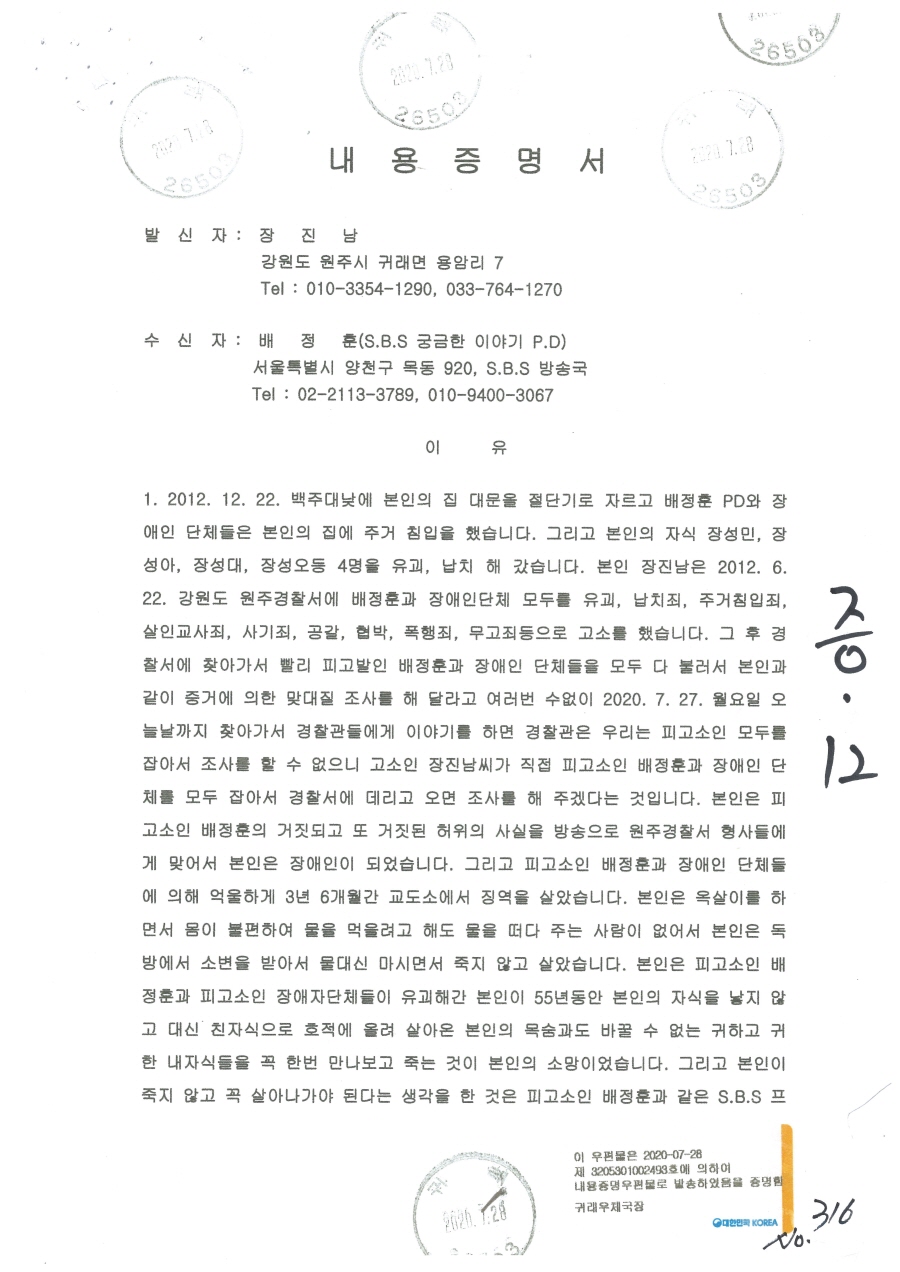 귀래
2020.7.28
26503
2020.7.28
26503
26503
2020.7.28
26503
내 용 증 명 서
발 신 자 : 장 진 남
강원도 원주시 귀래면 용암리 7
Tel : 010-3354-1290, 033-764-1270
수 신 자 : 배 정 훈(S.B.S 궁금한 이야기 P.D)
서울특별시 양천구 목동 920, S.B.S 방송국
Tel : 02-2113-3789, 010-9400-3067
이 유
1. 2012. 12. 22. 백주대낮에 본인의 집 대문울 절단기로 자르고 배정훈 PD와 장
애인 단체들은 본인의 집에 주거 침입을 했습니다. 그리고 본인의 자식 장성민, 장
성아, 장성대, 장성오등 4명을 유괴, 납치 해 갔습니다. 본인 장진남은 2012. 6.
22. 강원도 원주경찰서에 배정훈과 장애인단체 모두를 유괴, 납치죄, 주거침입죄,
살인교사죄, 사기죄, 공갈, 협박, 폭행죄, 무고죄등으로 고소를 했습니다. 그 후 경
찰서에 찾아가서 빨리 피고발인 배정훈과 장애인 단체들을 모두 다 불러서 본인과
같이 증거에 의한 맞대질 조사를 해 달라고 여러번 수없이 2020. 7. 27. 월요일 오
늘날까지 찾아가서 경찰관들에게 이야기를 하면 경찰관은 우리는 피고소인 모두를
잡아서 조사를 할 수 없으니 고소인 장진남씨가 직접 피고소인 배정훈과 장애인 단
체를 모두 잡아서 경찰서에 데리고 오면 조사를 해 주겠다는 것입니다. 본인은 피
고소인 배정훈의 거짓되고 또 거짓된 허위의 사실을 방송으로 원주경찰서 형사들에
게 맞어서 본인은 장애인이 되었습니다. 그리고 피고소인 배정훈과 장애인 단체들
에 의해 억울하게 3년 6개월간 교도소에서 징역을 살았습니다. 본인은 옥살이를 하
면서 몸이 불편하여 물을 먹을려고 해도 물을 떠다 주는 사람이 없어서 본인은 독
방에서 소변을 받아서 물대신 마시면서 죽지 않고 살았습니다. 본인은 피고소인 배
정훈과 피고소인 장애자단체들이 유괴해간 본인이 55년동안 본인의 자식을 낳지 않
고 대신 친자식으로 호적에 올려 살아온 본인의 목숨과도 바꿀 수 없는 귀하고 귀
한 내자식들을 꼭 한번 만나보고 죽는 것이 본인의 소망이었습니다. 그리고 본인이
죽지 않고 꼭 살아나가야 된다는 생각을 한 것은 피고소인 배정훈과 같은 S.B.S 프
증. 12
이 우편물은 2020-07-28
제 3205301002493호에 의하여
내용증명우편물로 발송하였음을 증명함
귀래우체국장
대한민국 KOREA
귀래
2020.7.28
No. 316